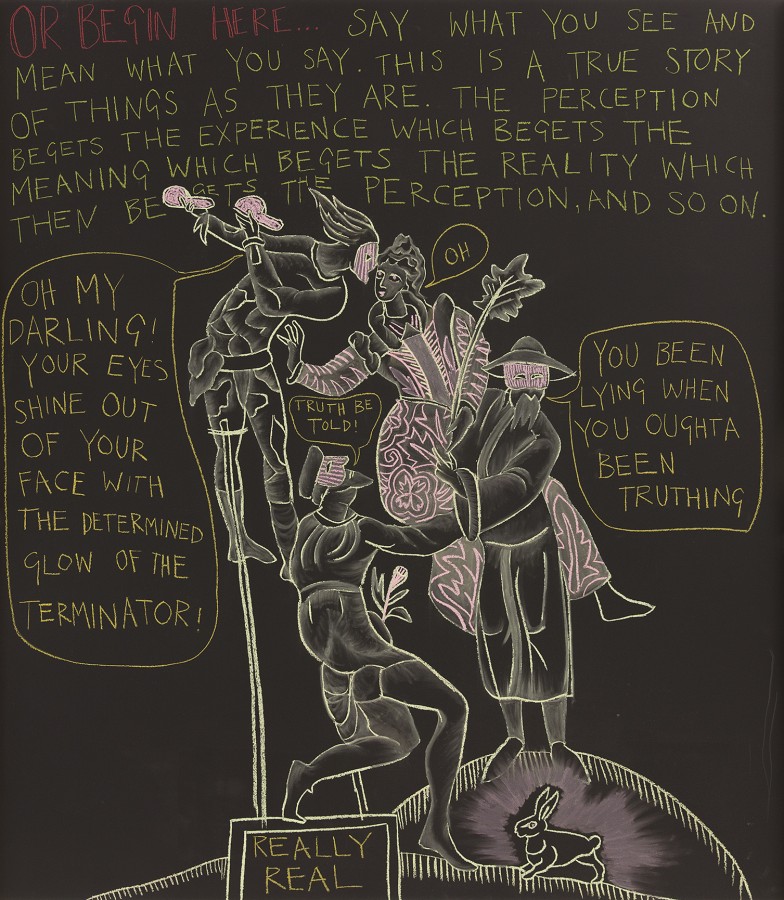 OR BEGIN HERE... SAY WHAT YOU SEE AND
MEAN WHAT YOU SAY. THIS IS A TRUE STORY
OF THINGS AS THEY ARE. THE PERCEPTION
BEGETS THE EXPERIENCE WHICH BEGETS THE
MEANING WHICH BEGETS THE REALITY WHICH
THEN BEGETS THE PERCEPTION, AND SO ON.
OH
OH MY
DARLING!
YOUR EYES
SHINE OUT
OF YOUR
FACE WITH
THE DETERMINED
GLOW OF THE
TERMINATOR!
TRUTH BE
TOLD!
YOU BEEN
LYING WHEN
YOU OUGHTA
BEEN
TRUTHING
REALLY
REAL